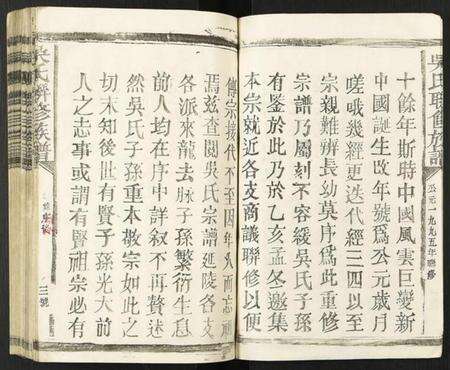 吳氏聯修族譜
公元一九九五年聯修
十餘年斯時中國風雲巨變新
中國誕生改年號為公元歲月
嗟哦幾經更迭代經三四以至
宗親難辨長幼莫序爲此重修
宗譜乃屬刻不容緩吳氏子孫
有鉴於此乃於乙亥孟冬邀集
本宗就近各支商議聯修以便
傳宗接代不至因年久而忘
焉兹查閱吳氏宗譜延陵各支
各派來龍去脉子孫繁衍生息
前人均在序中詳叙不再贅述
然吳氏子孫重本敬宗如此之
切未知後世有賢子孫光大前
人之志事或謂有賢祖宗必有
吳氏聯修族譜
三號